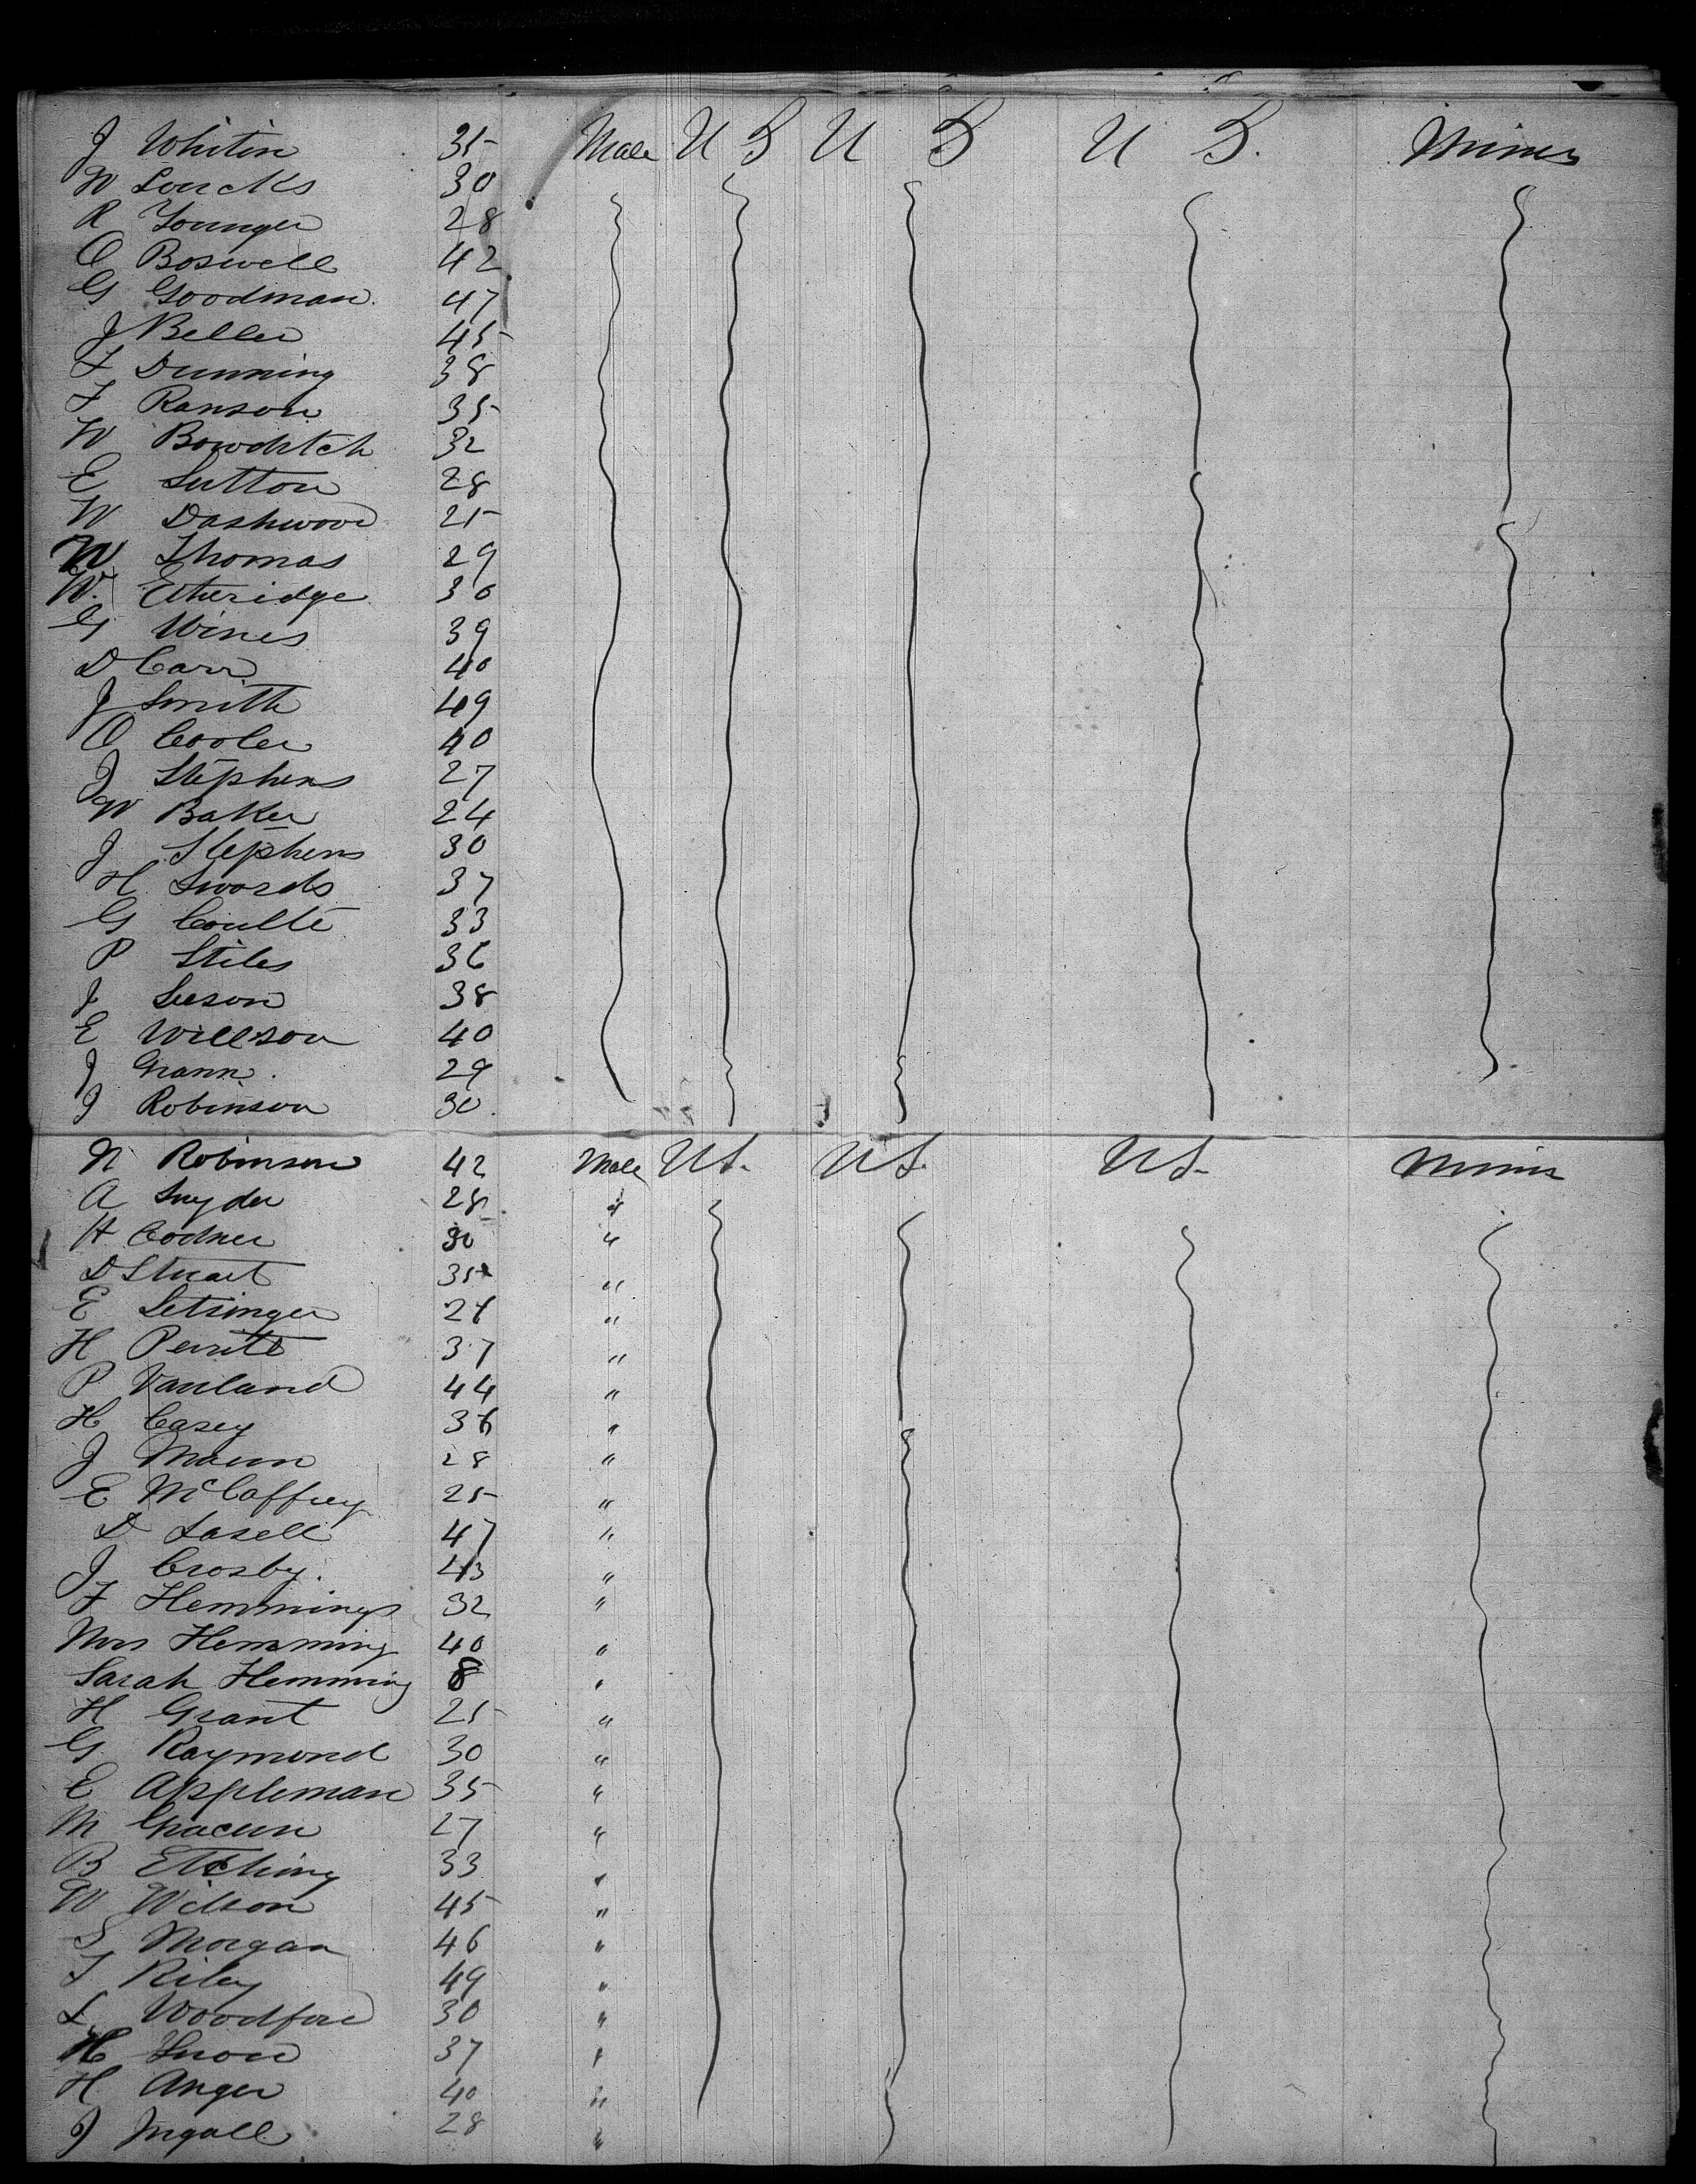 J Whitin 35 Male U S U S U S. Miner
W Loucks 30
R Younger 28
O Boswell 42
G Goodman. 47
J Beller 45
F Dunning 38
F Ranson 35
W Bowditch 32
E Sutton 28
W Dashwood 25
W Thomas 29
W. Etheridge 30
G Wines 39
D Carr 40
J Smith 49
O Cooler 40
J Stephens 27
W Baker 24
J Stephens 30
H. Swords 37
G Coulte 33
P Stiles 36
J Leeson 38
E Willson 40
J Grann. 29
J Robinson 30.
N Robinson 42 Male US. US. US. Miner
A Snyder 28 "
H Codner 30 "
D Stuart 35 "
E Letsinger 26 "
H Perrite 37 "
P Vanland 44 "
H Casey 36 "
J Mann 28 "
E McCaffrey 25 "
D Lasell 47 "
J Crosby. 43 "
F Hemmings 32 "
Mrs Hemming 40 "
Sarah Hemming 8 "
H Grant 25 "
G. Raymond 30 "
E Appleman 35 "
M 27 "
B Etching 33 "
W Wilson 45 "
S Morgan 46 "
T Riley 49 "
L Woodford 30 "
H Snow 37 "
H. Anger 40 "
J Ingall 28 "